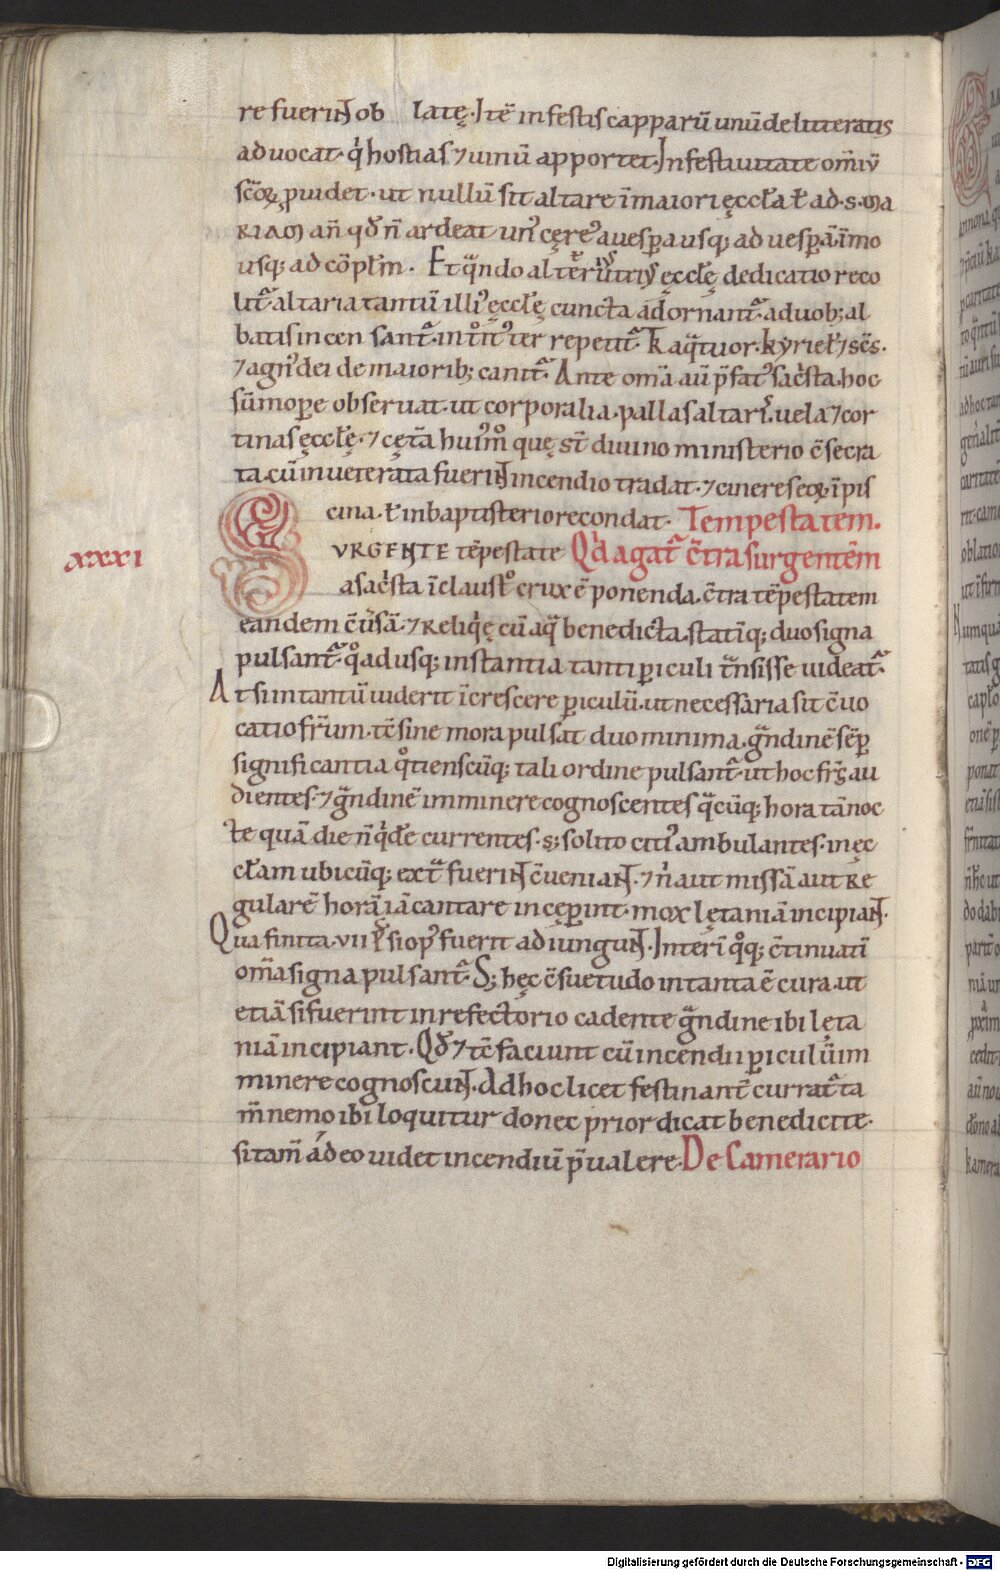 re fuerint ob latę. Itē in festis capparū unū de litteratis
aduocat. q̇ hostias ⁊ uinū apportet. In festiuitate omiū
sc̄oꝝ p̄uidet. ut nullū sit altare ī maiori ęccl̄a ł ad. s. ma
riam añ qđ ñ ardeat un᾿ cęre᾿ a uespera usq; ad uesperā. īmo
usq; ad cōpl̄m. Et qᷓndo alteri᾿ utri᾿ ęccl̄ę dedicatio reco
lit᷑ altaria tantū illi᾿ ęccl̄ę cuncta adornant᷑. a duob; al
batis incensant᷑. in
 ter repetit᷑. Kaqᷓtuor. kyriel̄. ⁊ sc̄s.
⁊ agn᾿ dei de maiorib; canit᷑. Ante om̄a aū p̄fat᾿ sac̓sta. hoc
sūmopere obseruat. ut corporalia. pallas altariū. uela ⁊ cor
tinas ęccl̄ę. ⁊ cęt̄a hui᾿m̊ quę st̄ diuino ministerio c̄secra
ta. cū inueterata fuerint incendio tradat. ⁊ cineres eoꝝ ī pis
cina. ł in baptisterio recondat. Tempestatem.
xxxi
SVRGENTE tēpestate Qd̓ agat᷑ c̄tra surgentēm
a sac̓sta ī claust̊ crux ē ponenda. c̄tra tēpestatem
eandem c̄u̓sā. ⁊ reliq̓ę cū aqᷓ benedicta. statīq; duo signa
pulsant᷑. q̊adusq; instantia tanti periculi tᷓnsisse uideat᷑.
At si intantū uiderit īcrescere periculū. ut necessaria sit c̄uo
catio fr̄um. tc̄ sine mora pulsat duo minima. gᷓndinē sēp
significantia q̊tienscūq; tali ordine pulsant᷑. ut hoc fr̄s au
dientes. ⁊ gᷓndinē imminere cognoscentes qᷓcūq; hora tā noc
te quā die ñ q̓dē currentes. s; solito citi᾿ ambulantes. in ęc
cl̄am ubicūq; extᷓ fuerint c̄ueniant. ⁊ n̓ aut missā aut re
gularē horā iā cantare incęperint. mox lętaniā incipiant.
Qua finita. vii p̄s. si op᾿ fuerit adiungunt. Interī q̊q; c̄tinuati
om̄a signa pulsant᷑. S; hęc c̄suetudo in tanta ē cura. ut
etiā si fuerint in refectorio cadente gᷓndine ibi lęta
niā incipiant. Qđ ⁊ tc̄ faciunt cū incendii periculū im
minere cognoscunt. Ad hoc licet festinant᷑ currat᷑ ta
m̄ nemo ibi loquitur donec prior dicat benedicite.
si tam̄ ádeo uidet incendiū p̄ualere. De Camerario
Digitalisierung gefördert durch die Deutsche Forschungsgemeinschaft - DFG